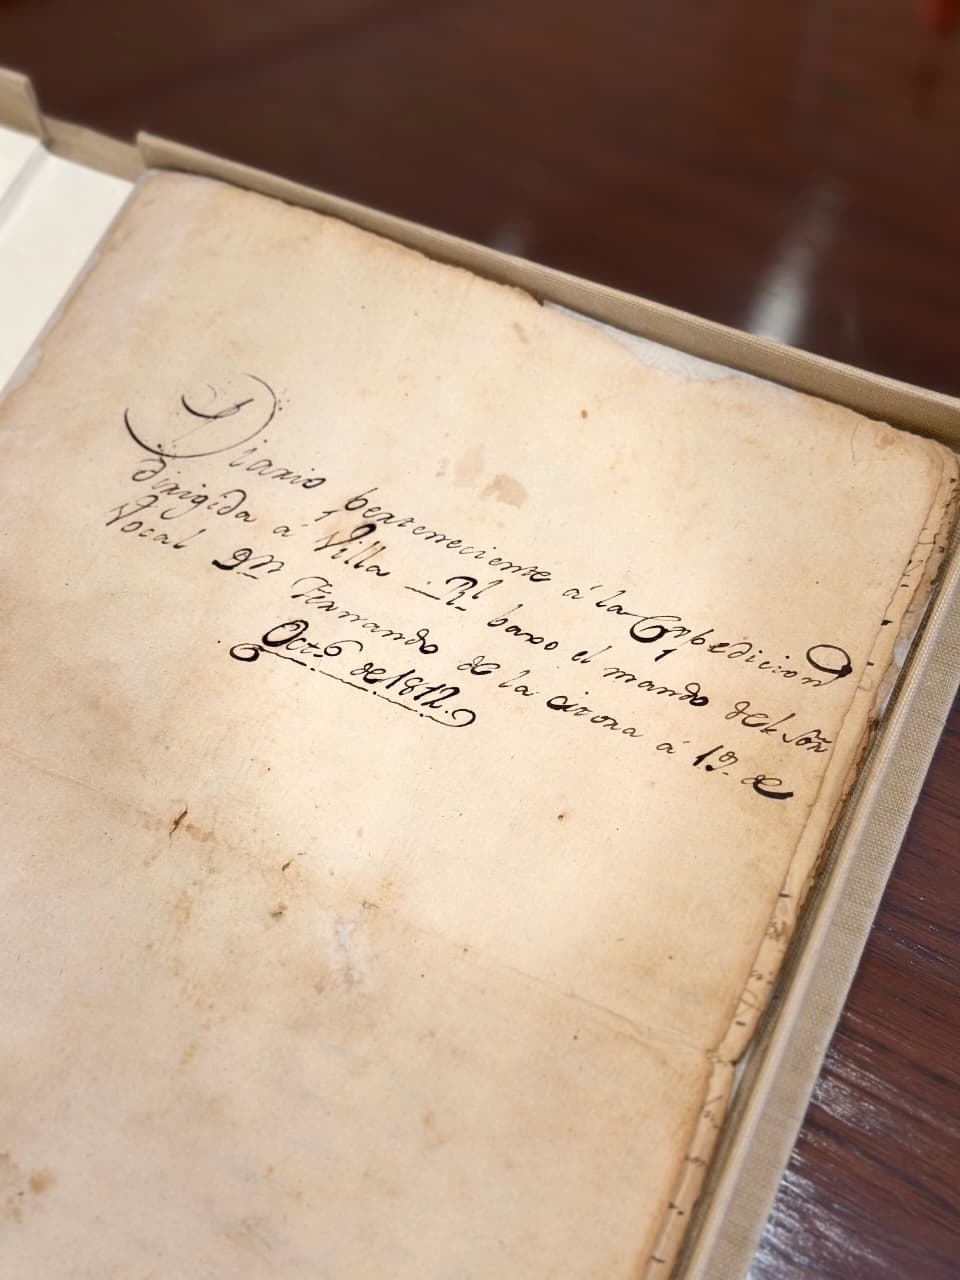 Diario perteneciente á la Expedicion
dirigida á Villa Rl. baxo el mando del Sõr
Vocal Dn. Fernando de la
á 19. de
Oct.e de 1812.